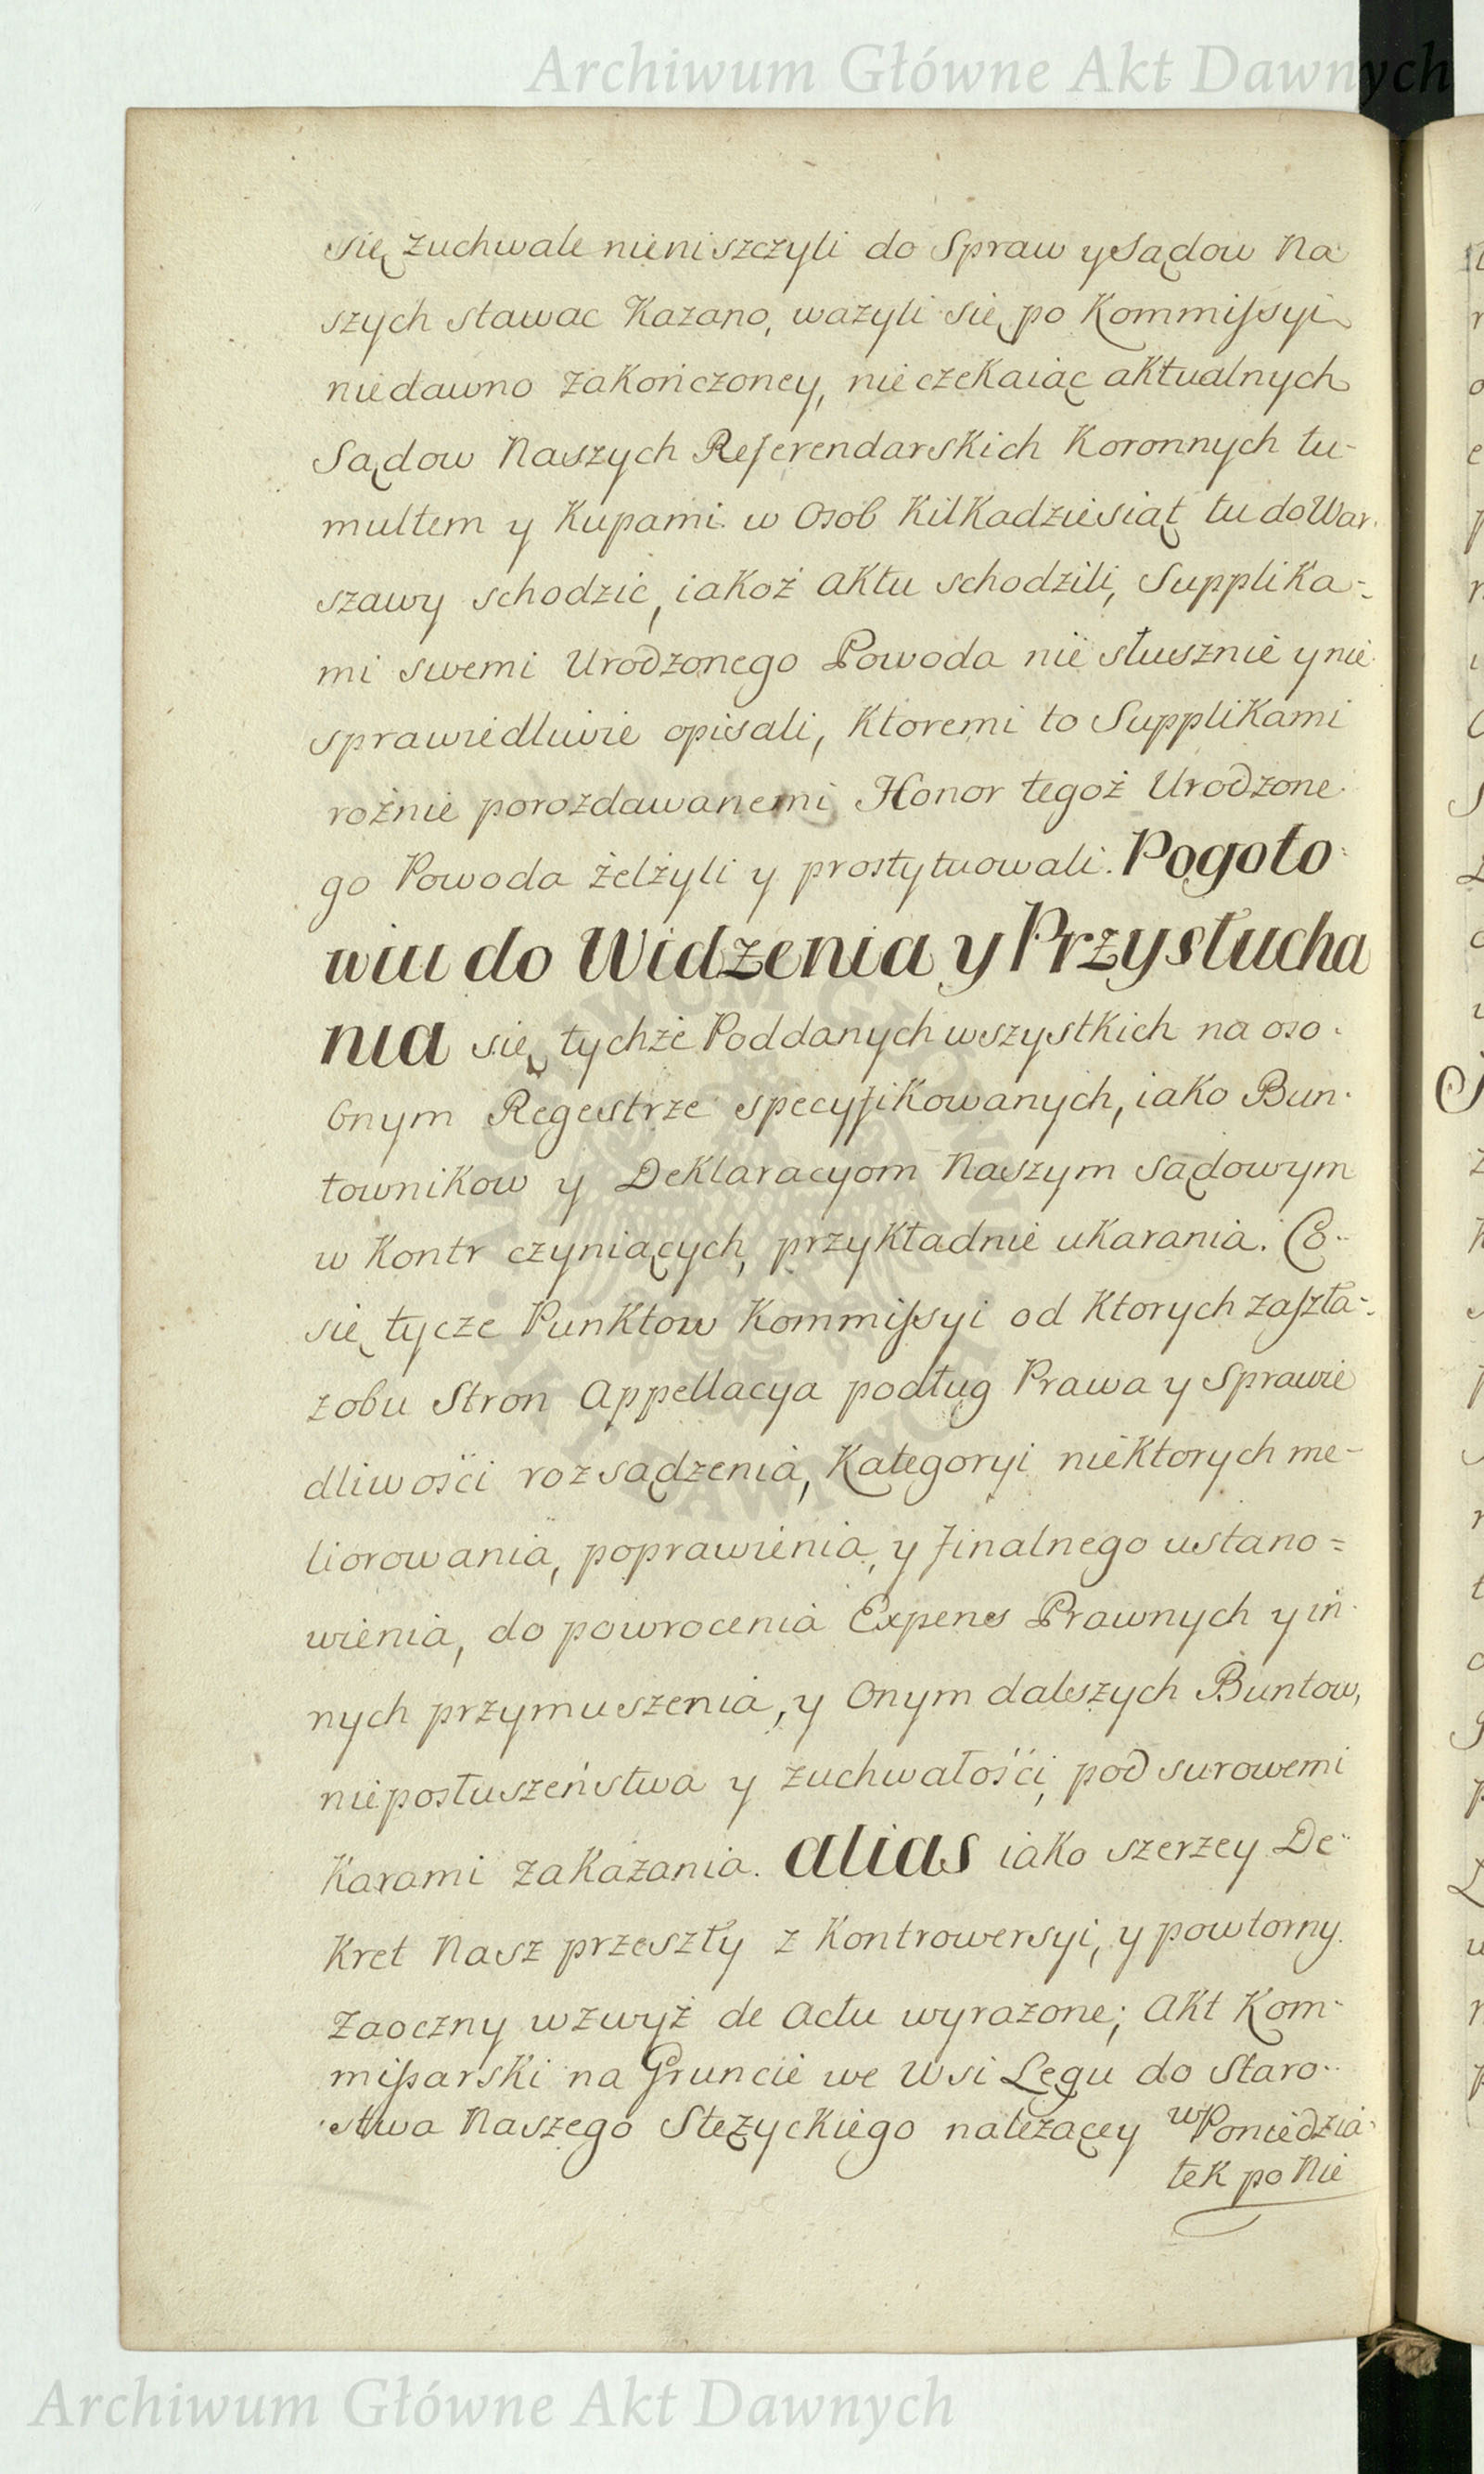 Archiwum Główne Akt Dawnych
się zuchwale nieniszczyli do Spraw y Sądow Na
szych stawac Kazano, wazyli się po Kommissyi
niedawno zakończoney, nieczekaiąc aktualnych
Sądow Naszych Referendarskich Koronnych tu-
multem y Kupami w Osob Kilkadziesiąt tu do War-
szawy schodzic, iakoż aktu schodzili, Supplika-
mi swemi Urodzonego Powoda nie słusznie y nie
sprawiedliwie opisali, Ktoremi to Supplikami
rożnie porozdawanemi Honor tegoż Urodzone
go Powoda żelżyli y prostytuowali. Pogoto-
wiu do Widzenia y Przysłucha
nia się tychże Poddanych wszystkich na oso-
bnym Regestrze specyfikowanych, iako Bun-
townikow y Deklaracyom Naszym sądowym
w Kontr czyniących, przykładnie ukarania. Co-
się tycze Punktow Kommissyi od Ktorych zaszła-
z obu Stron Appellacya podług Prawa y Sprawie
dliwości rozsądzenia, Kategoryi niektorych me-
liorowania, poprawienia, y finalnego ustano=
wienia, do powrocenia Expens Prawnych y in-
nych przymuszenia, y Onym dalszych Buntow,
nieposłuszeństwa y zuchwałości, pod surowemi
Karami zakazania. alias iako szerzey De-
kret Nasz przeszły z Kontrowersyi, y powtorny
Zaoczny wzwyż de Actu wyrazone; Akt Kom-
missarski na Gruncie we Wsi Łęgu do Staro-
stwa Naszego Stężyckiego należącey w Poniedzia-
tek po Nie
Archiwum Główne Akt Dawnych